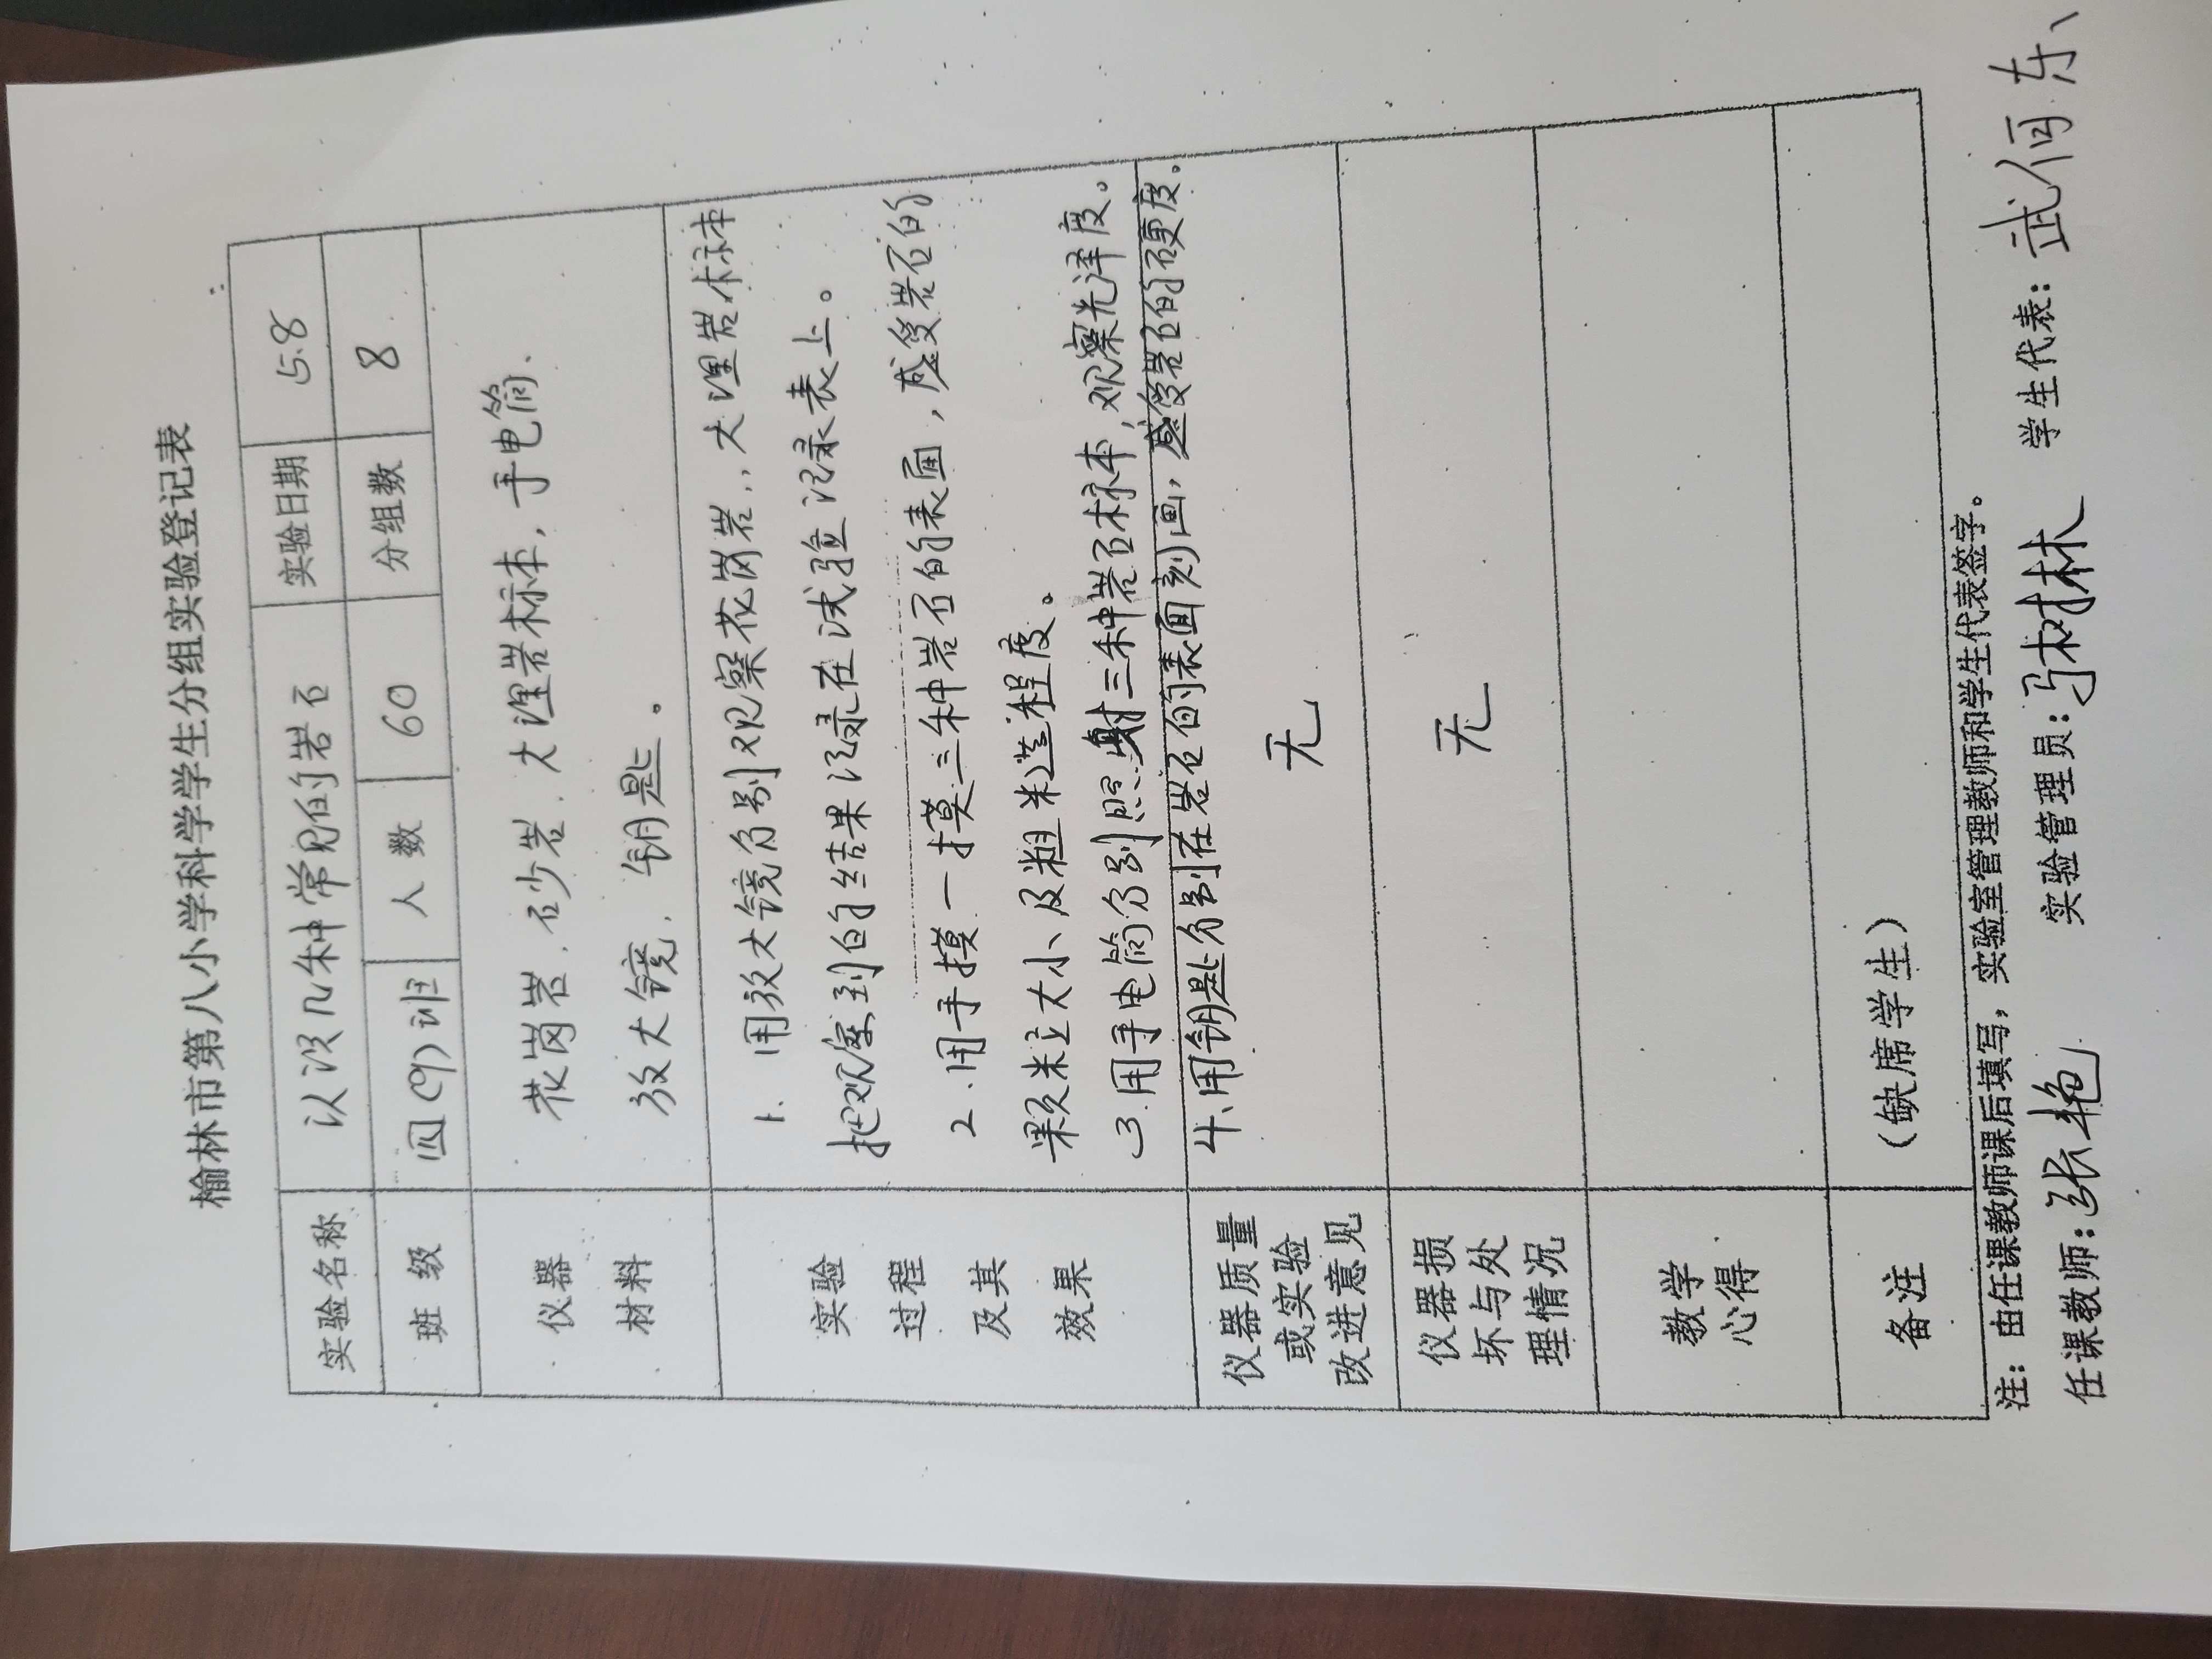 榆林市第八小学科学学生分组实验登记表
实验名称 认识几种常见的岩石 实验日期 5.8
班 级 四(9)班 人 数 60 分组数 8
仪器
材料
花岗岩、砂岩、大理岩标本，手电筒、
放大镜、钥匙。
实验
过程
及其
效果
1、用放大镜分别观察花岗岩、大理岩标本
把观察到的结果记录在试验记录表上。
2、用手摸一摸三种岩石的表面，感受岩石的
颗粒大小、及粗糙程度。
3、用手电筒分别照射三种岩石标本，观察光泽度。
4、用钥匙分别在岩石的表面刻画，感受岩石的硬度。
仪器质量
或实验
改进意见
无
仪器损
坏与处
理情况
无
教学
心得
备注 （缺席学生）
注：由任课教师课后填写，实验室管理教师和学生代表签字。
任课教师：张艳 实验管理员：马树林 学生代表：武 东